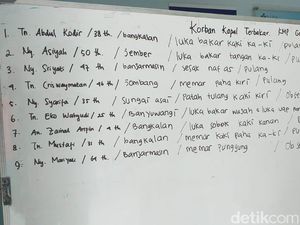 Korban Kapal Terbakar KMP
1. Tn. Abdul Kadir / 38 th. / bangkalan / luka bakar kaki ka-ki /
2. Ny. Asiyah / 50 th. / Jember / luka bakar tangan ka-ki /
3. Ny. Sriyati / 47 th / banjarmasin / sesak nafas / pulang
4. Tn / Sampang / memar paha kiri / Pulang
5. Ny. Syarifa / 35 th / Sungai asai / Patah tulang kaki kiri / Obse
6. Tn. Eko Wahyudi / 35 th / Banyuwangi / luka bakar wajah & luka
7. An. Zainal Arifin / 4 th / Bangkalan / luka sobek kaki kanan /
8. Tn. Mustafi / 31 th / bangkalan / memar kaki paha ka-ki /
9. Ny. Mariyati / 64 th. / Banjarmasin / memar punggung / Obser
detikcom